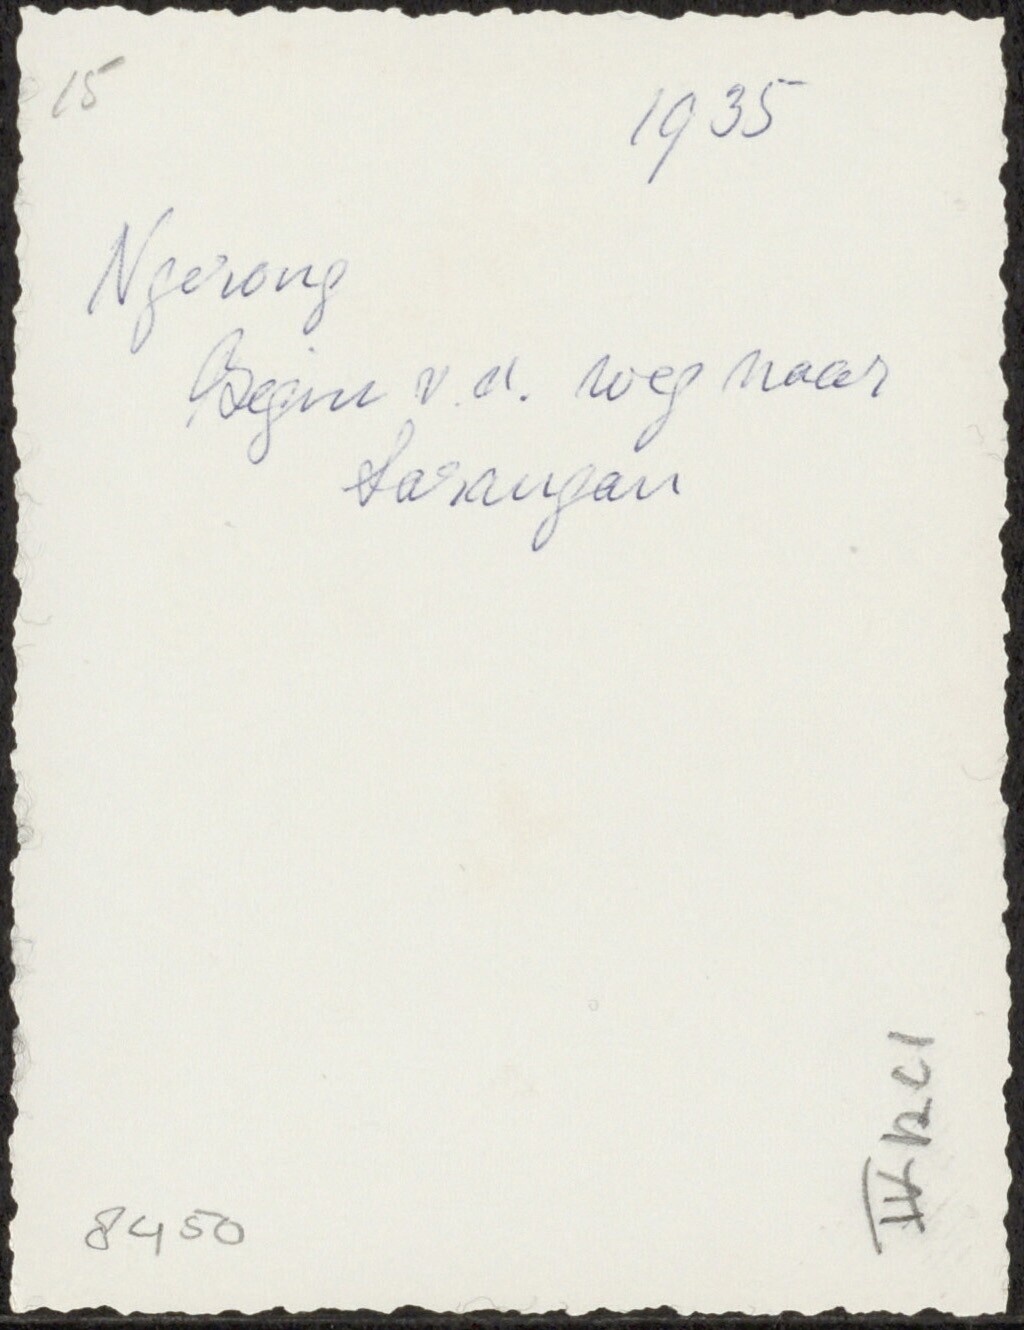 15
1935
Ngerong
Begin v.d. weg naar
Sarangan
8450